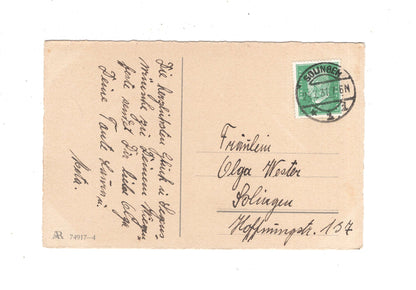 Die herzlichsten Glück u. Segens-
wünsche zu Deinem Wiegen-
feste sendet Dir liebe Olga
Deine Tante Lavinia
Meta.
SOLINGEN
Fräulein
Olga Wester
Solingen
Hoffnungstr. 137
74917-4